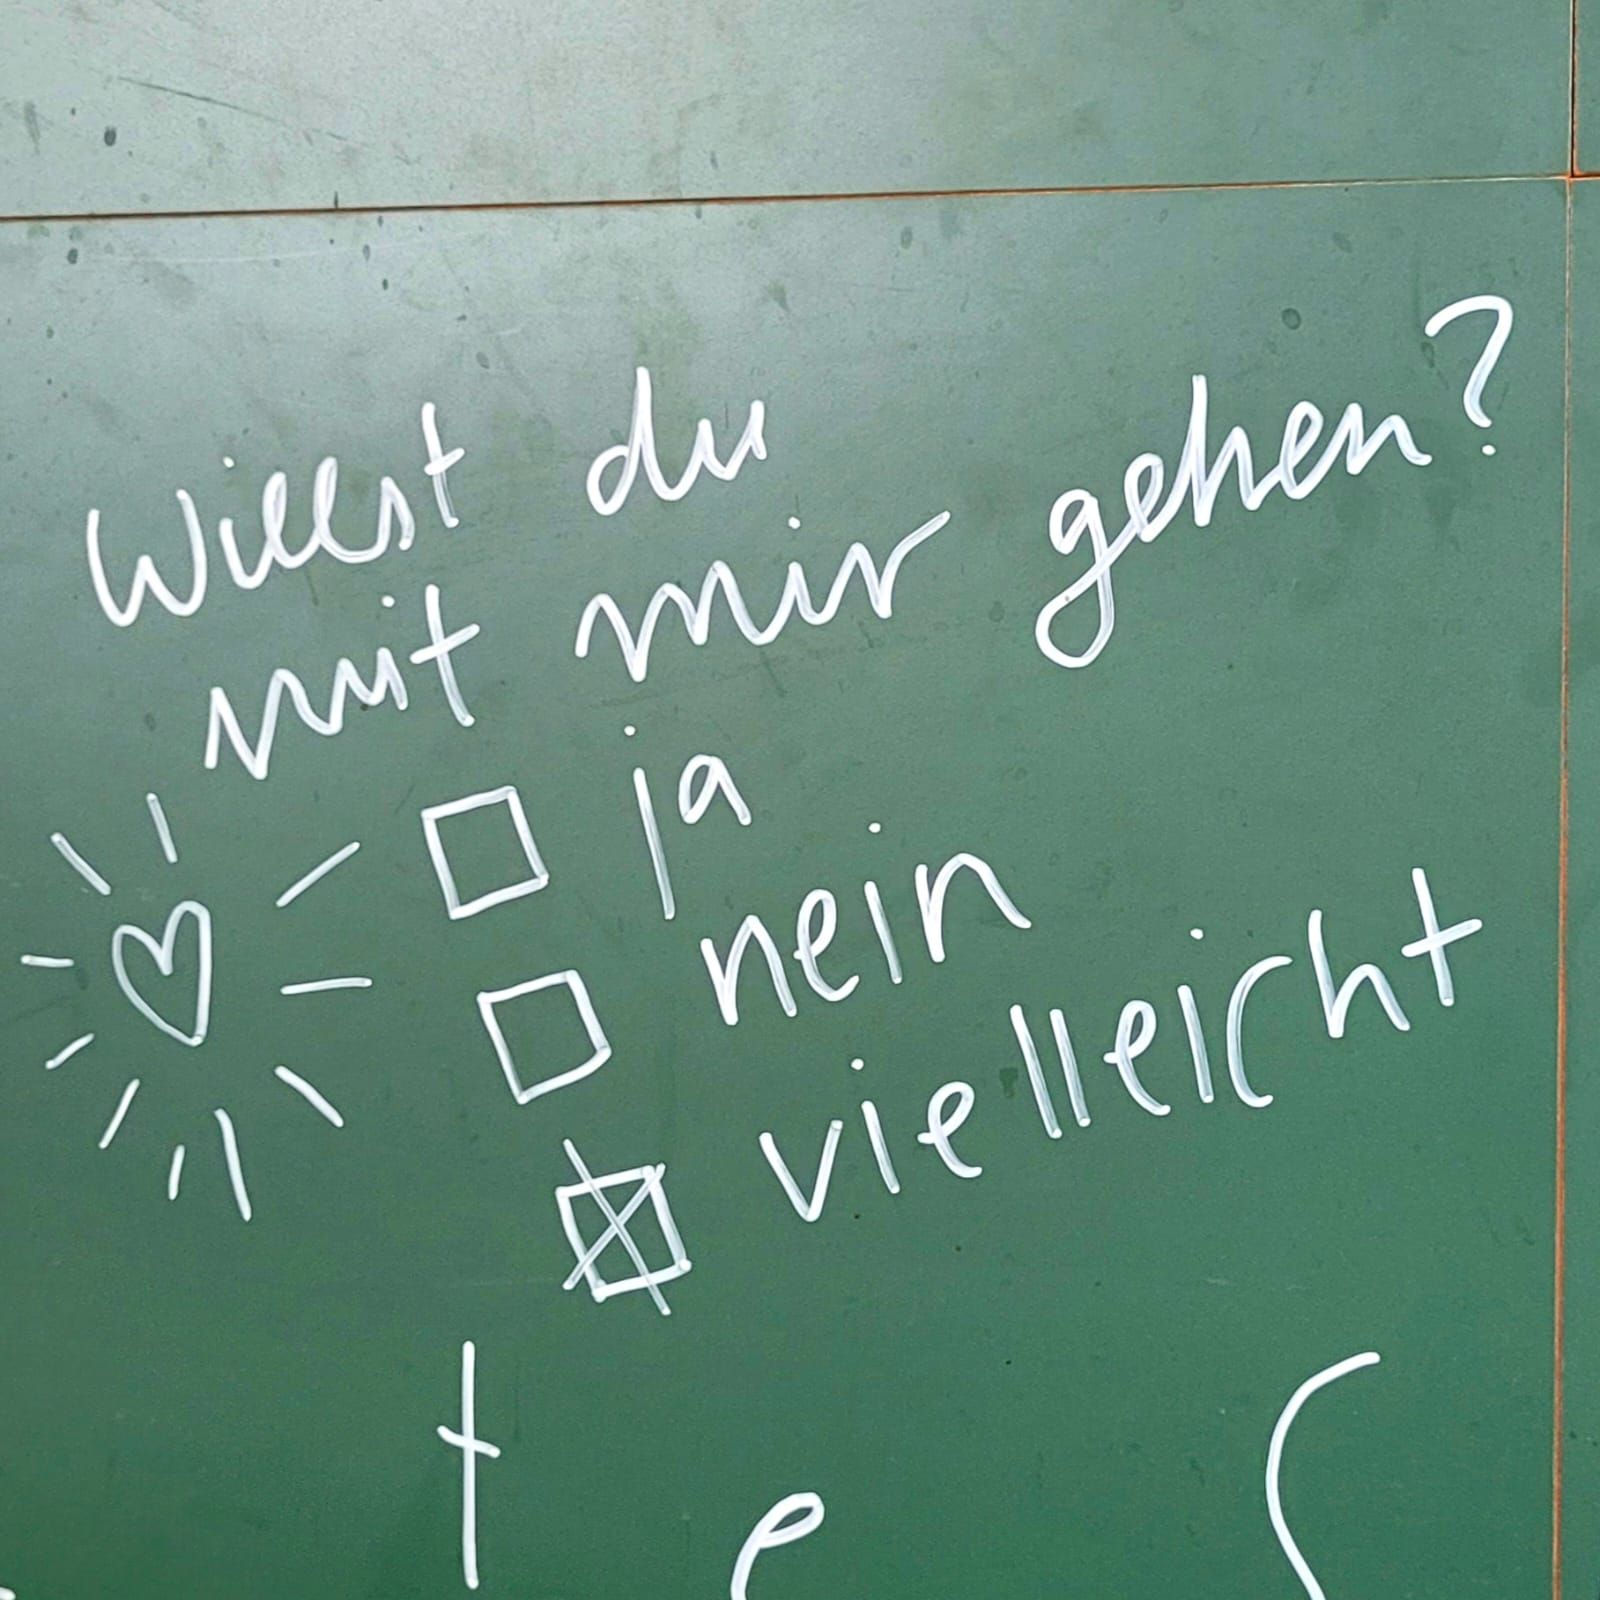 Willst du
mit mir gehen?
ja
nein
vielleicht